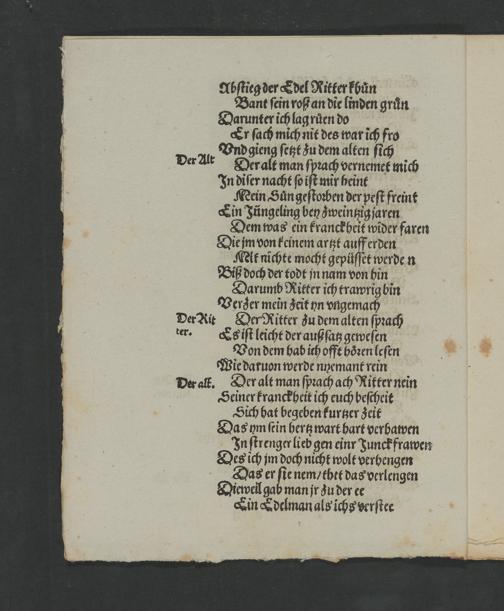 Abstieg der Edel Ritter khün
Bant sein roß an die linden grün
Darunter ich lag rüen do
Er sach mich nit des war ich fro
Vnd gieng setzt zu dem alten sich
Der Alt
Der alt man sprach vernemet mich
In diser nacht so ist mir heint
Mein Sün gestorben der pest freint
Ein Jüngeling bey zweintzig jaren
Dem was ein kranckheit wider faren
Die jm von keinem artzt auff erden
Mit nichte mocht gepüsset werde n
Biß doch der todt jn nam von hin
Darumb Ritter ich trawrig bin
Verzer mein zeit yn vngemach
Der Rit
ter.
Der Ritter zu dem alten sprach
Es ist leicht der außsatz gewesen
Von dem hab ich offt hören lesen
Wie daruon werde nyemant rein
Der alt.
Der alt man sprach ach Ritter nein
Seiner kranckheit ich euch bescheit
Sich hat begeben kurtzer zeit
Das ym sein hertz wart hart verhawen
In strenger lieb gen einr Junckfrawen
Des ich jm doch nicht wolt verhengen
Das er sie nem/ thet das verlengen
Dieweil gab man jr zu der ee
Ein Edelman als ichs verstee